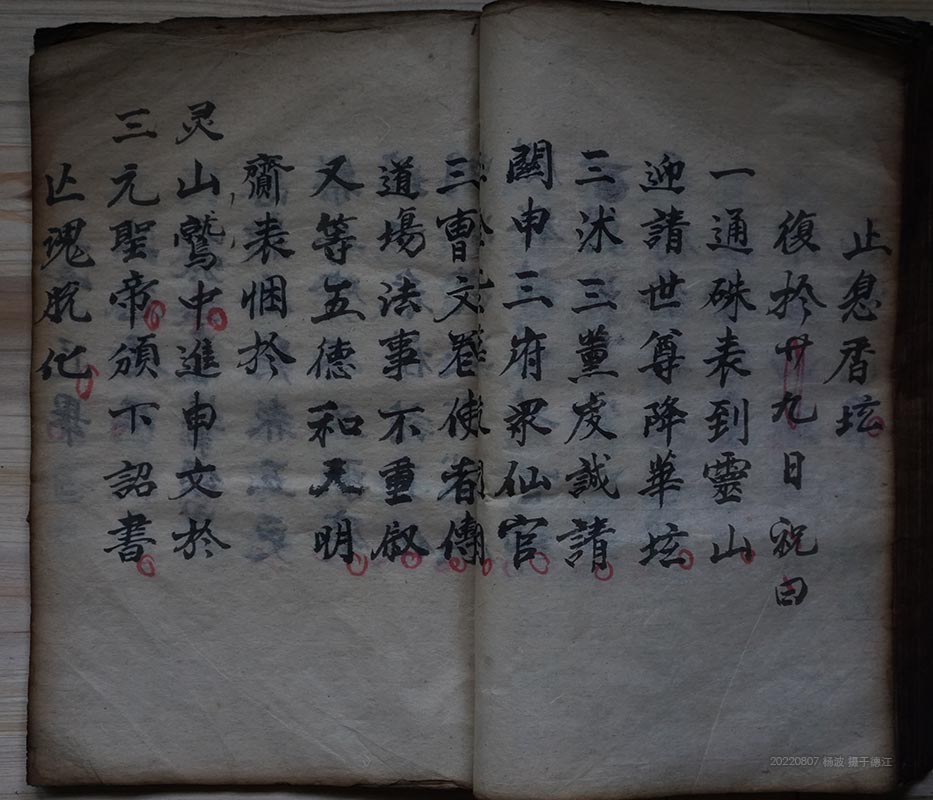 止息香坛
復扵廿九日祝曰
一通硃表到靈山
迎請世尊降華坛
三沐三薰虔誠請
關申三府眾仙官
三曹文卷使者傳
道場法事不重叙
又等五德和天明
齎表悃扵
灵山鷲中進申文扵
三元聖帝頒下詔書
亡魂脫化
20220807 杨波 摄于德江